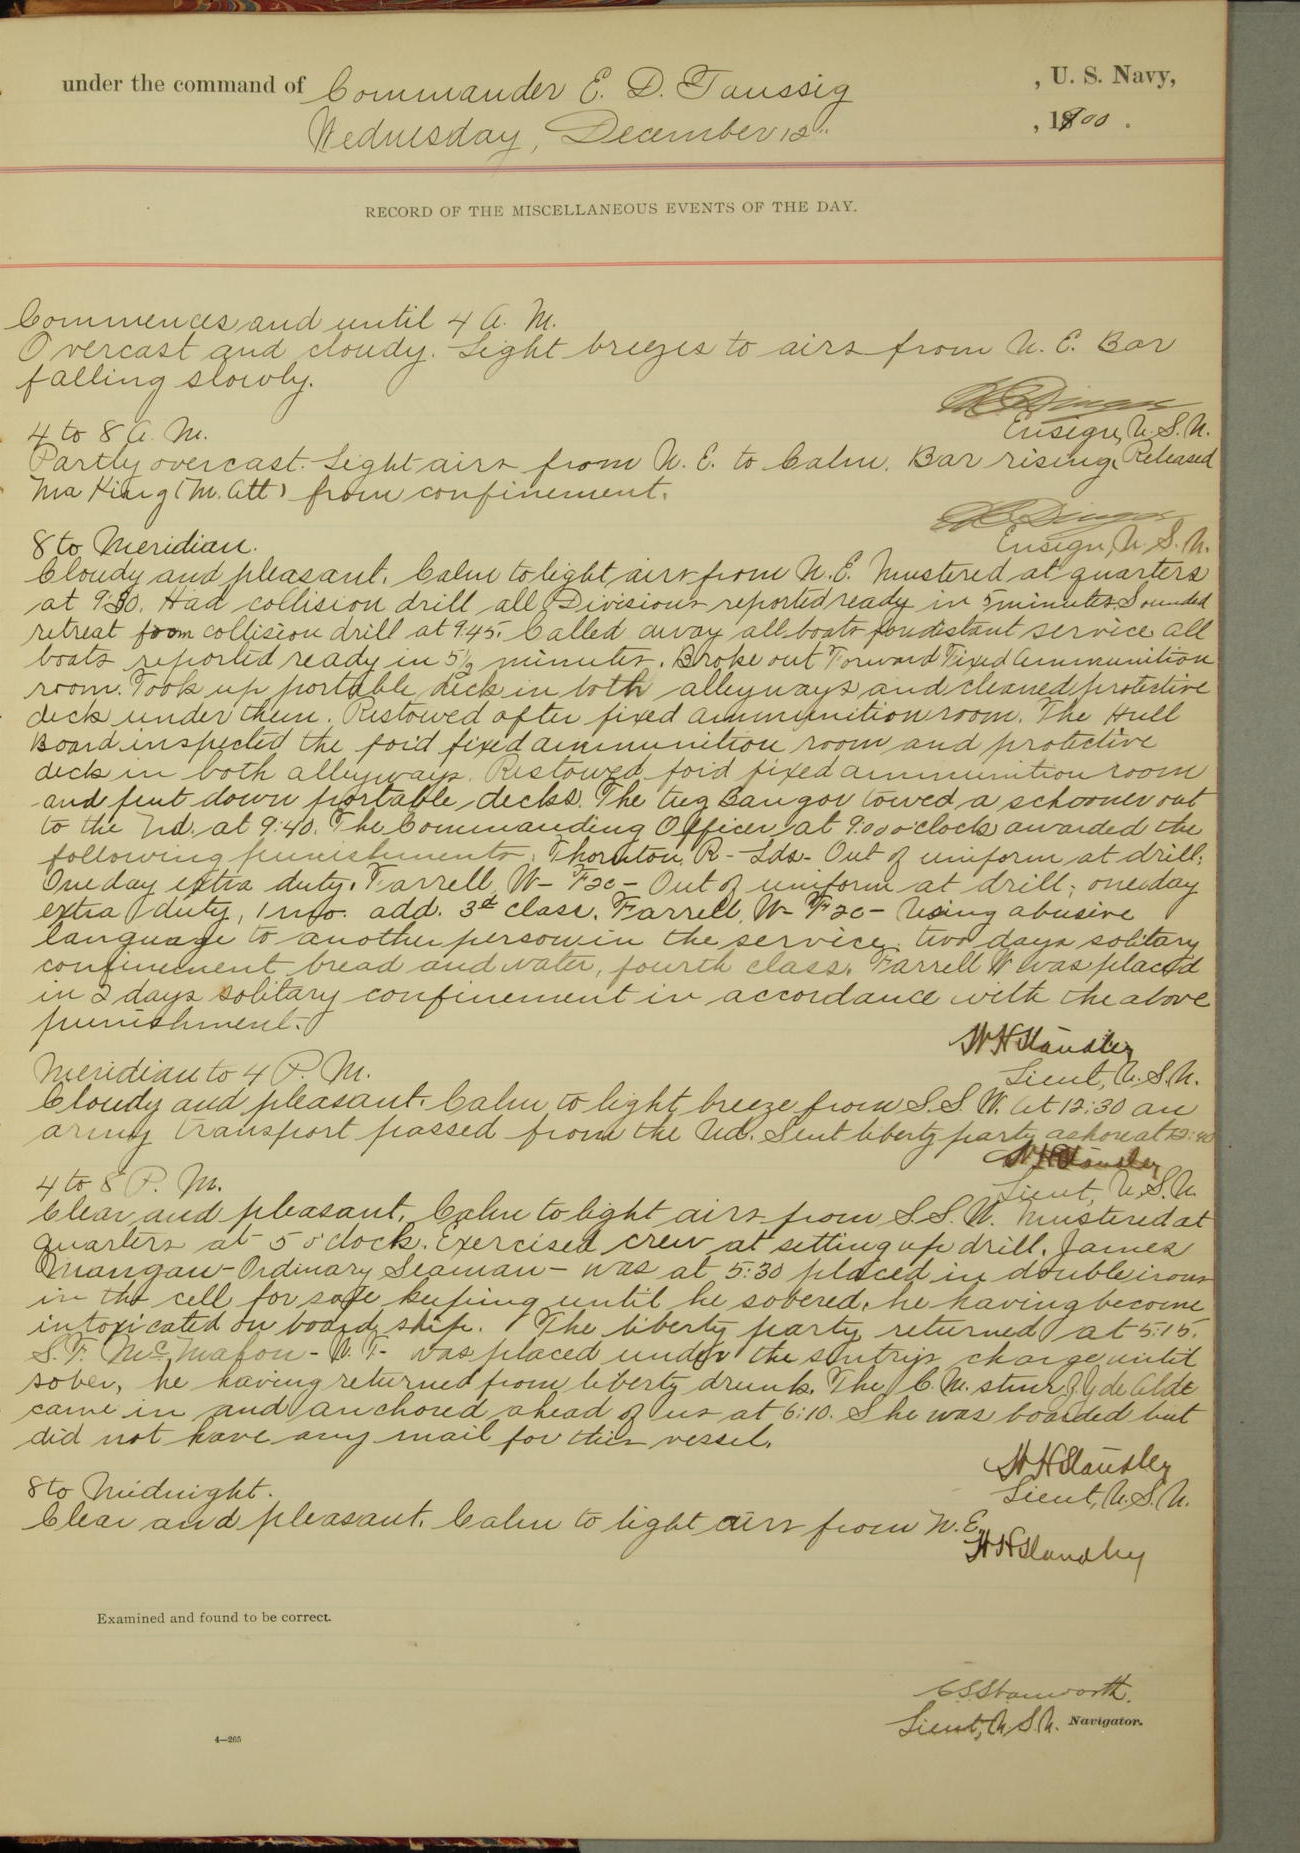 under the command of Commander E. D. Taussig, U. S. Navy,
Wednesday, December 12", 1900.
RECORD OF THE MISCELLANEOUS EVENTS OF THE DAY.
Commences and until 4 A. M.
Overcast and cloudy. Light breezes to airs from N. E. Bar
falling slowly.
Ensign, U. S. N.
4 to 8 A. M.
Partly overcast. Light airs from N. E. to Calm. Bar rising. Released
Ma King (M. Att) from confinement.
Ensign, U. S. N.
8 to Meridian.
Cloudy and pleasant. Calm to light airs from N. E. Mustered at quarters
at 9:30. Had collision drill all Divisions reported ready in 5 minutes. Sounded
retreat from collision drill at 9.45. Called away all boats for distant service all
boats reported ready in 5½ minutes. Broke out Forward Fixed Ammunition
room. Took up portable deck in both alleyways and cleaned protective
deck under them. Restowed after fixed ammunition room. The Hull
Board inspected the for'd fixed ammunition room and protective
deck in both alleyways. Restowed for'd fixed ammunition room
and put down portable decks. The tug Bangor towed a schooner out
to the N'd. at 9:40. The Commanding Officer at 9:00 o'clock awarded the
following punishments: Thornton, R - Lds - Out of uniform at drill;
One day extra duty. Farrell, W - F2c - Out of uniform at drill; one day
extra duty, 1 mo. add. 3d class. Farrell, W - F2c - Using abusive
language to another person in the service; two days solitary
confinement, bread and water, fourth class. Farrell W was placed
in 2 days solitary confinement in accordance with the above
punishment.
W H Standley
Lieut, U. S. N.
Meridian to 4 P. M.
Cloudy and pleasant. Calm to light breeze from S. S. W. At 12:30 an
army transport passed from the N'd. Sent liberty party ashore at 12:40
W H Standley
Lieut, U. S. N.
4 to 8 P. M.
Clear and pleasant. Calm to light airs from S. S. W. Mustered at
quarters at 5 o'clock. Exercised crew at setting up drill. James
Mangan - Ordinary Seaman - was at 5:30 placed in double irons
in the cell for safe keeping until he sobered, he having become
intoxicated on board ship. The liberty party returned at 5:15.
S. F. McMahon - W. T. - was placed under the sentry's charge until
sober, he having returned from liberty drunk. The C. M. stmr
came in and anchored ahead of us at 6:10. She was boarded but
did not have any mail for this vessel.
W H Standley
Lieut, U. S. N.
8 to Midnight.
Clear and pleasant. Calm to light airs from N. E.
W H Standley
Examined and found to be correct.
C S Stanworth.
Lieut, U. S. N. Navigator.
4—265